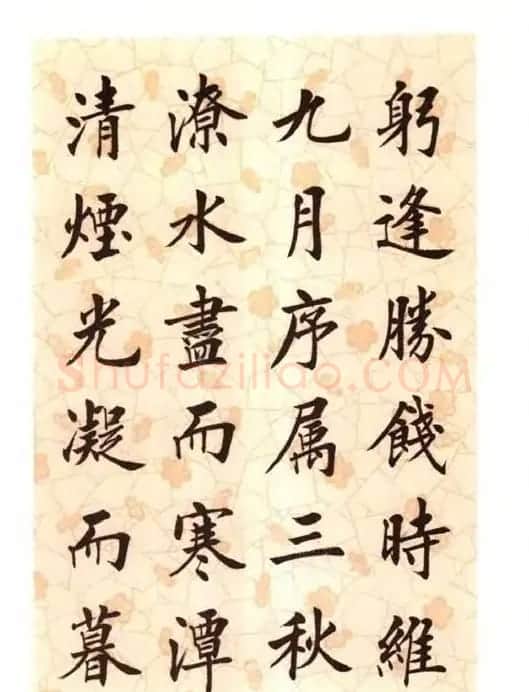 躬逢勝餞時維
九月序属三秋
潦水盡而寒潭
清煙光凝而暮
Shufaziliao.COM